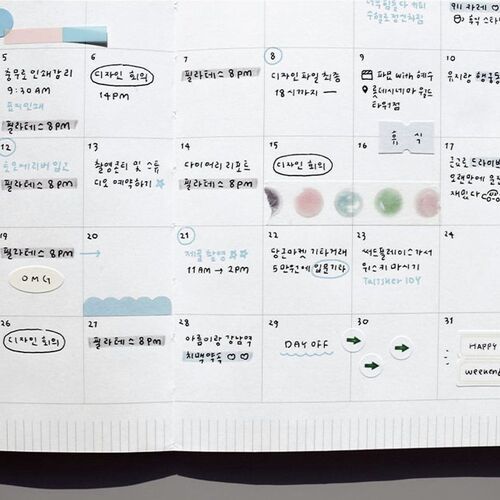 5
충무로 인쇄감리
9:30AM
표지인쇄
필라테스 8PM
6
디자인 회의
14PM
7
필라테스 8PM
8
디자인 파일 최종
18시까지 —
9
파묘 with 혜수
롯데시네마 월드
타워점
10
휴 식
12
필라테스 8PM
13
촬영콘티 및 스튜
디오 예약하기 ☆
14
다이어리 리포트
필라테스 8PM
15
디자인 회의
16
17
19
필라테스 8PM →
OMG
20
21
제품 촬영 ☆☆
11AM → 2PM
22
당근마켓 기타거래
5만원에
23
써드플레이스가서
위스키 마시기
Talisker 10Y
24
26
디자인 회의
27
필라테스 8PM
28
아름이랑 강남역
치맥약속 ♡♡
29
DAY OFF
30
31
HAPPY
weekend